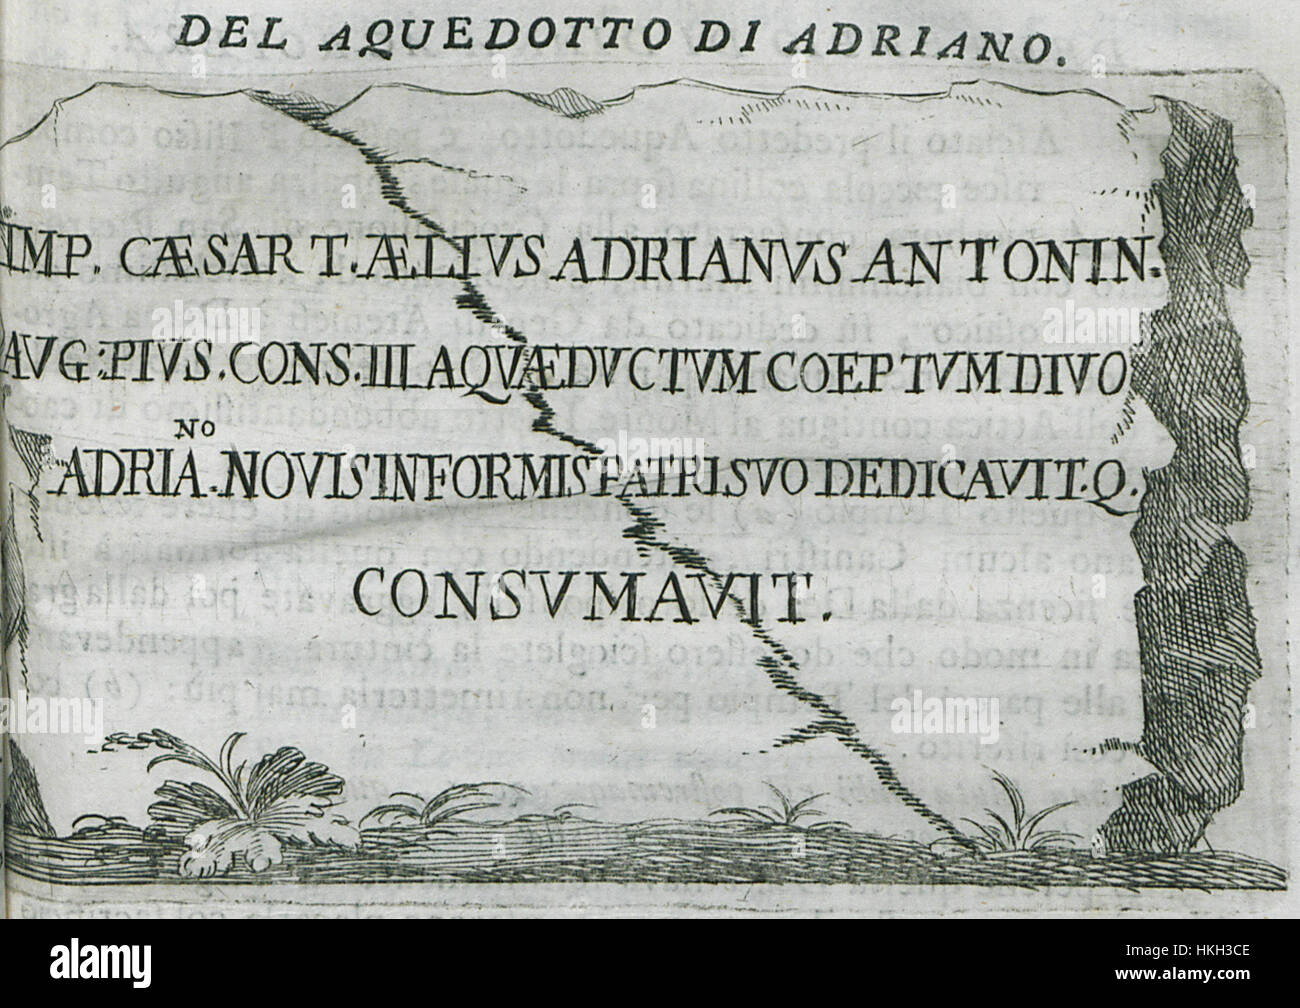 DEL AQUEDOTTO DI ADRIANO.
IMP. CÆSAR T. ÆLIVS ADRIANVS ANTONIN.
AVG: PIVS. CONS. III AQVÆDVCTVM COEPTVM DIVO
NO
ADRIA. NOVIS IN FORMIS PATRI SVO DEDICAVIT. Q.
CONSVMAVIT.
alamy
Image ID: HKH3CE
www.alamy.com